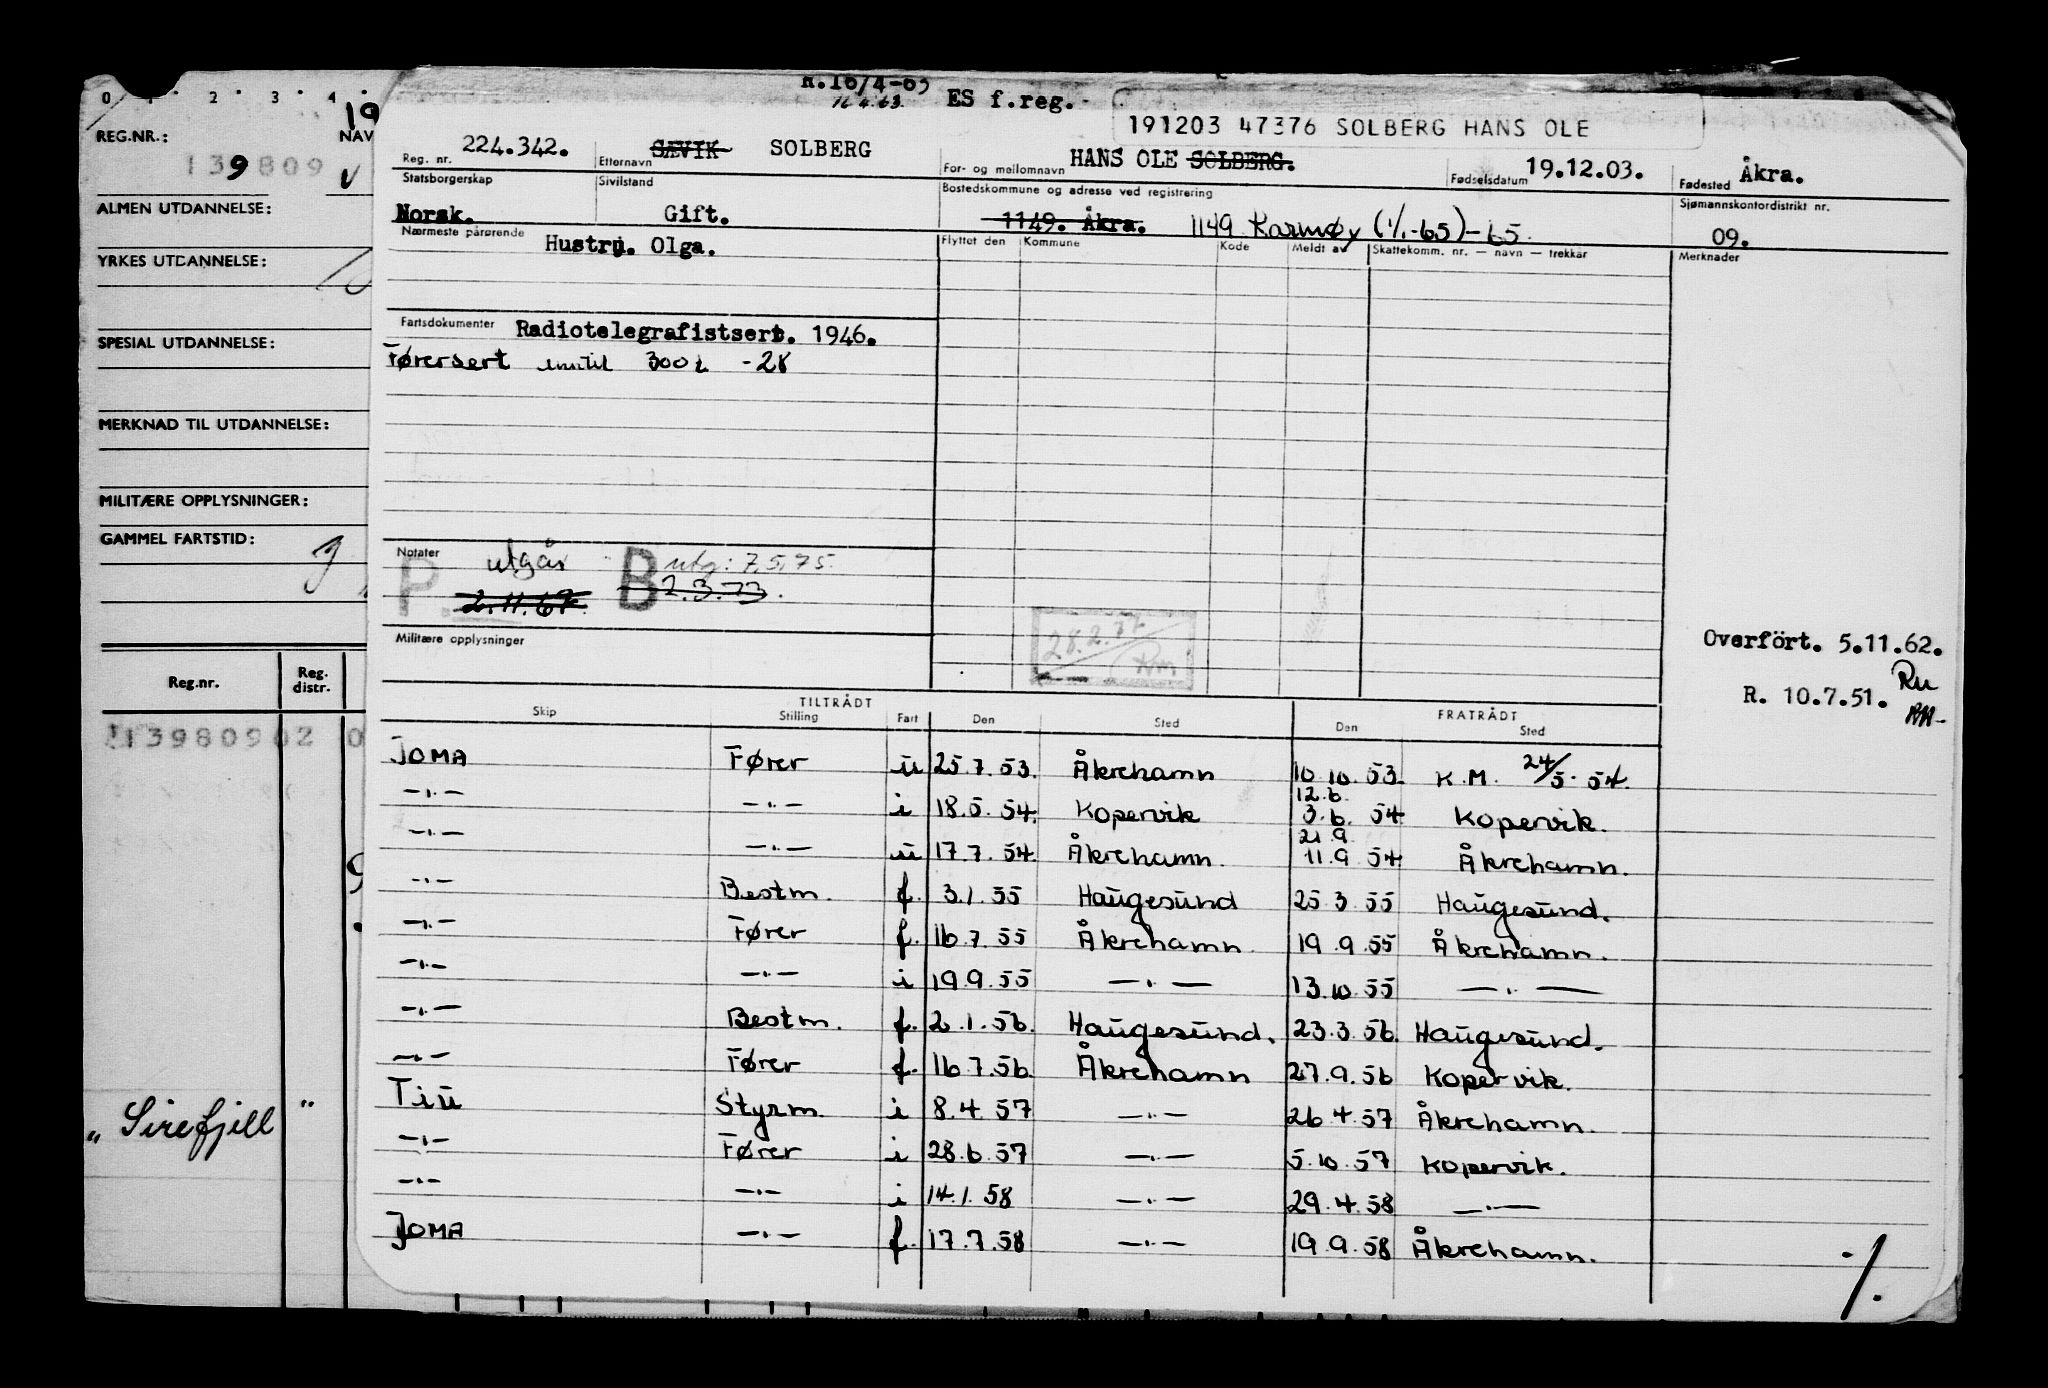 0 1 2 3 4
REG.NR.: NAV
139809
ALMEN UTDANNELSE:
YRKES UTDANNELSE:
SPESIAL UTDANNELSE:
MERKNAD TIL UTDANNELSE:
MILITÆRE OPPLYSNINGER:
GAMMEL FARTSTID:
Reg.nr. Reg. distr.
1398090 2 0
„ Sirefjell "
ES f.reg.
191203 47376 SOLBERG HANS OLE
Reg. nr. 224.342. Etternavn SÆVIK SOLBERG For- og mellomnavn HANS OLE SOLBERG. Fødselsdatum 19.12.03. Fødested Åkra.
Statsborgerskap Sivilstand Bostedskommune og adresse ved registrering Sjømannskontordistrikt nr.
Norsk. Gift. 1149. Åkra. 1149 Karmøy (1/1-65)-65. 09.
Nærmeste pårørende Hustru. Olga. Flyttet den Kommune Kode Meldt av Skattekomm. nr. — navn — trekkår Merknader
Fartsdokumenter Radiotelegrafistsert. 1946.
Førersert inntil 300 t -28
Notater utgår B utg: 7.5.75.
P. 2.11.67. 2.3.73.
Militære opplysninger
28.2.77
Rm
Overfört. 5.11.62.
Ru
R. 10.7.51.
TILTRÅDT FRATRÅDT
Skip Stilling Fart Den Sted Den Sted
JOMA Fører u 25.7.53. Åkrehamn 10.10.53. K.M. 24/5-54.
12.6.
—"— —"— i 18.5.54. Kopervik 3.6.54 Kopervik.
21.9
—"— —"— u 17.7.54. Åkrehamn. 11.9 54 Åkrehamn.
—"— Bestm. f. 3.1.55 Haugesund 25.3.55 Haugesund.
—"— Fører f. 16.7.55 Åkrehamn. 19.9.55 Åkrehamn.
—"— —"— i 19.9.55 —"— 13.10.55 —"—
—"— Bestm. f. 2.1.56. Haugesund. 23.3.56. Haugesund.
—"— Fører f. 16.7.56. Åkrehamn 27.9.56 Kopervik.
Tiu Styrm. i 8.4.57 —"— 26.4.57 Åkrehamn.
—"— Fører i 28.6.57 —"— 5.10.57 Kopervik.
—"— —"— i 14.1.58 —"— 29.4.58 —"—
JOMA —"— f. 17.7.58 —"— 19.9.58 Åkrehamn.
./.